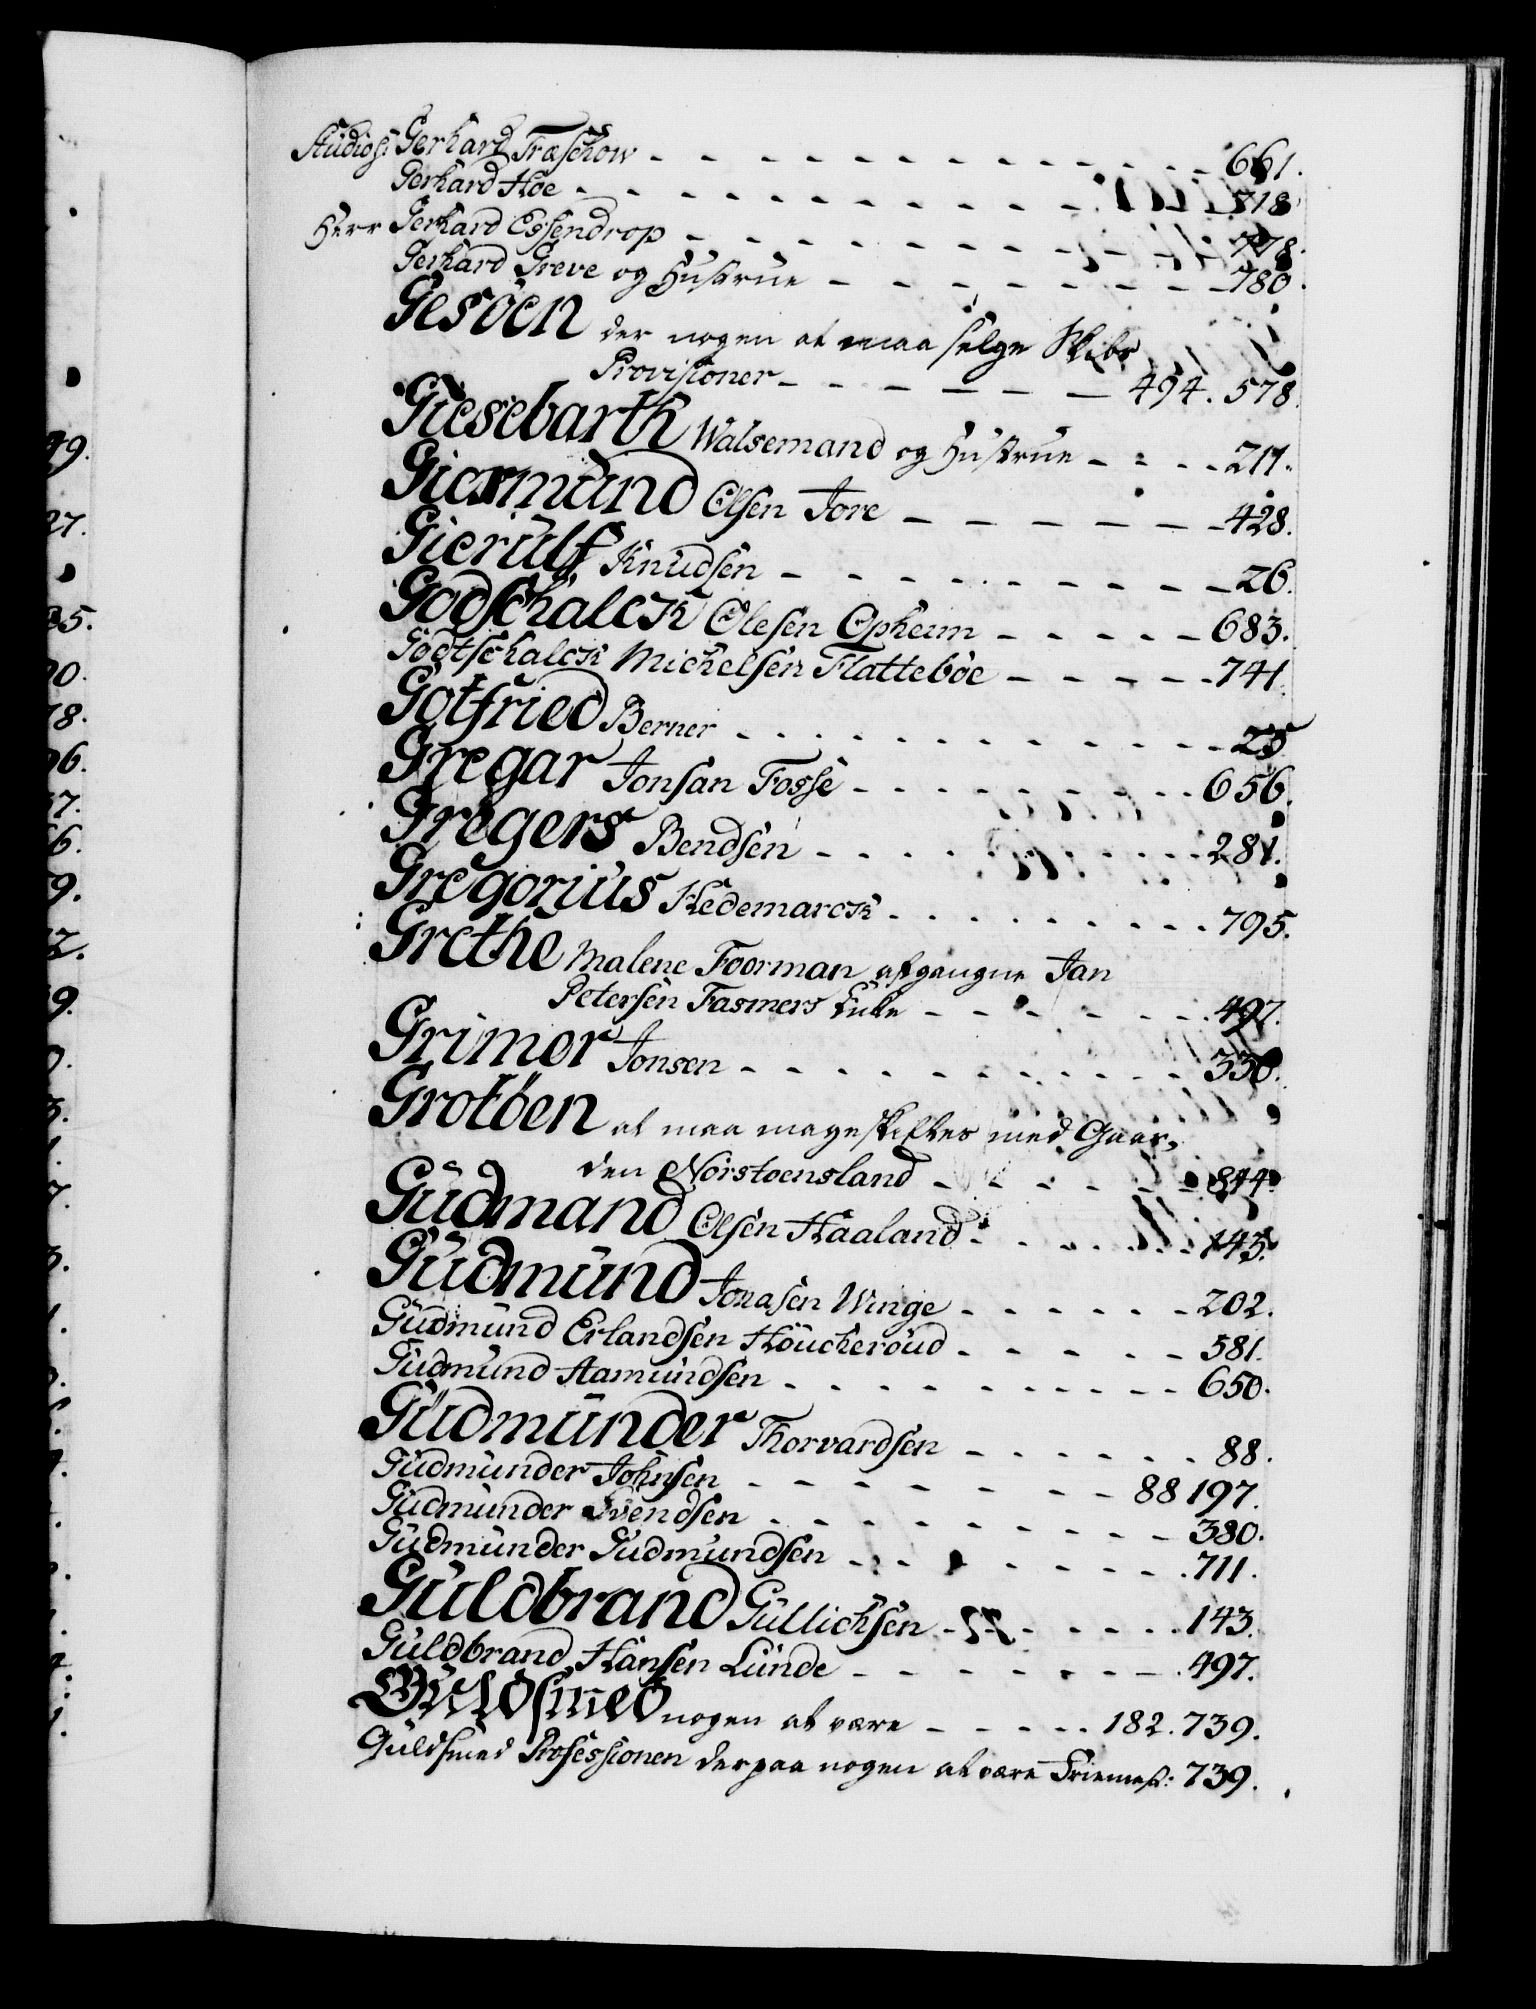 Studios: Gerhard Træschow - - - - - - - - - 661.
Gerhard Hoe - - - - - - - - - 718.
Herr Gerhard Essendrop - - - - - - - - - 778.
Gerhard Greve og Hustrue - - - - - - - - 780.
Gesöen der nogen at maa selge Skibs
Provisioner - - - - - - 494. 578.
Giesebarth Walsemand og Hustrue - - - - 217.
Giermund Olsen Tore - - - - - - 428.
Gierulf Knudsen - - - - - - - - - 26.
Godschalck Olesen Opheim - - - - - 683.
Godtschalck Michelsen Flattebøe - - - - - 741.
Gotfried Berner - - - - - - - - - - 25
Gregar Jonsan Fosse - - - - - - - - 656.
Gregers Bendsen - - - - - - - - - 281.
Gregorius Hedemarck - - - - - - - - 795.
Grethe Malene Foorman afgangne Jan
Petersen Fasmers Enke - - - - - - 497.
Grimer Jonsen - - - - - - - - - 330.
Grotöen at maa mageskiftes med Gaar,
den Norstoensland - - - - - - 844.
Gudmand Olsen Haaland - - - - - - 145.
Gudmund Jonasen Winge - - - - - - 202.
Gudmund Erlandsen Höucheroud - - - - - 581.
Gudmund Aamundsen - - - - - - - - - 650.
Gudmunder Thorvardsen - - - - - - 88.
Gudmunder Johnsen - - - - - - - 88 197.
Gudmunder Svendsen - - - - - - - - - 380.
Gudmunder Gudmundsen - - - - - - - - 711.
Guldbrand Gullichsen - - - - - - - 143.
Guldbrand Hansen Lunde - - - - - - - 497.
Guldsmed nogen at være - - - - - 182. 739.
Guldsmed Professionen derpaa nogen at være Friemest: 739.
49.
27.
35.
90.
18.
96.
7.
6.
9.
2.
9.